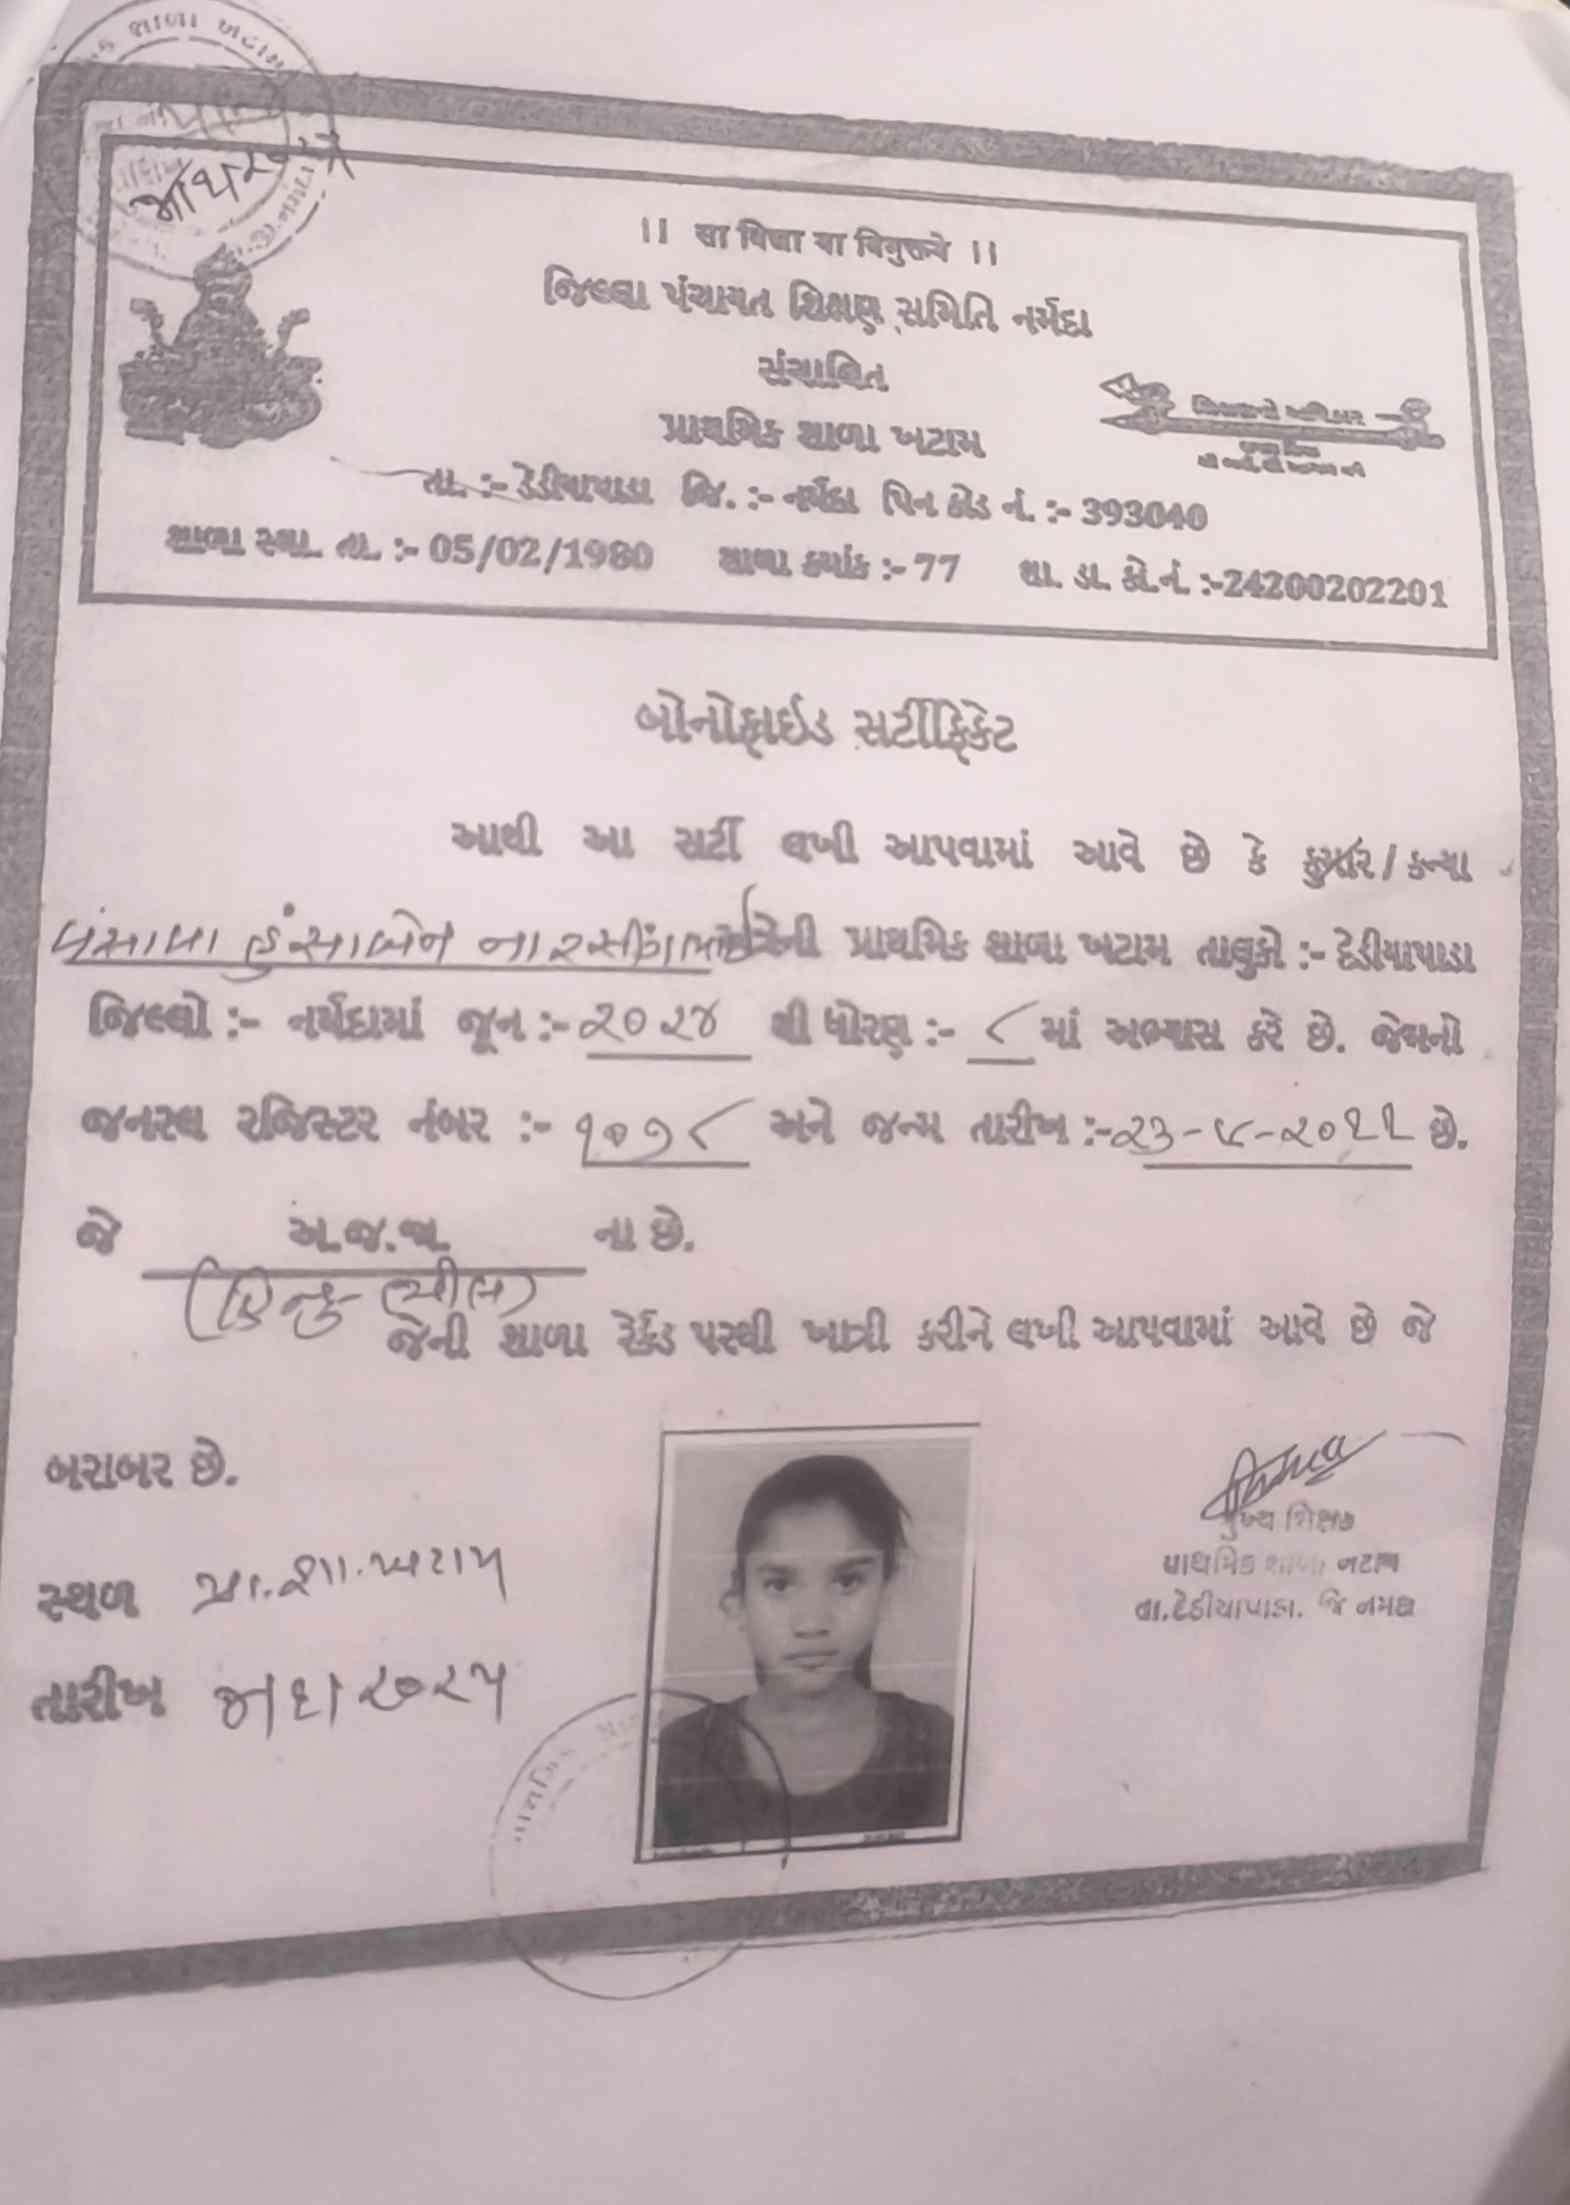 ।। सा विद्या या विमुक्तये ।।
જિલ્લા પંચાયત શિક્ષણ સમિતિ નર્મદા
સંચાલિત
પ્રાથમિક શાળા ખટામ
તા. :- દેડીયાપાડા જિ. :- નર્મદા પિન કોડ નં. :- 393040
શાળા સ્થા. તા. :- 05/02/1980 શાળા ક્રમાંક :- 77 શા. ડા. કો.નં. :-24200202201
બોનોફાઇડ સર્ટીફિકેટ
આથી આ સર્ટી લખી આપવામાં આવે છે કે કુમાર / કન્યા
વસાવા હંસાબેન નારસીંગભાઈ અત્રેની પ્રાથમિક શાળા ખટામ તાલુકો :- દેડીયાપાડા
જિલ્લો :- નર્મદામાં જૂન :- ૨૦૨૪ થી ધોરણ :- ૮ માં અભ્યાસ કરે છે. જેમનો
જનરલ રજિસ્ટર નંબર :- ૧૦૭૮ અને જન્મ તારીખ :- છે.
જે અ.જ.જા. ના છે.
(હિન્દુ ભીલ)
જેની શાળા રેર્કડ પરથી ખાત્રી કરીને લખી આપવામાં આવે છે જે
બરાબર છે.
સ્થળ પ્રા.શા.ખટામ
તારીખ
મુખ્ય શિક્ષક
પ્રાથમિક શાળા ખટામ
તા.દેડીયાપાડા. જિ નર્મદા